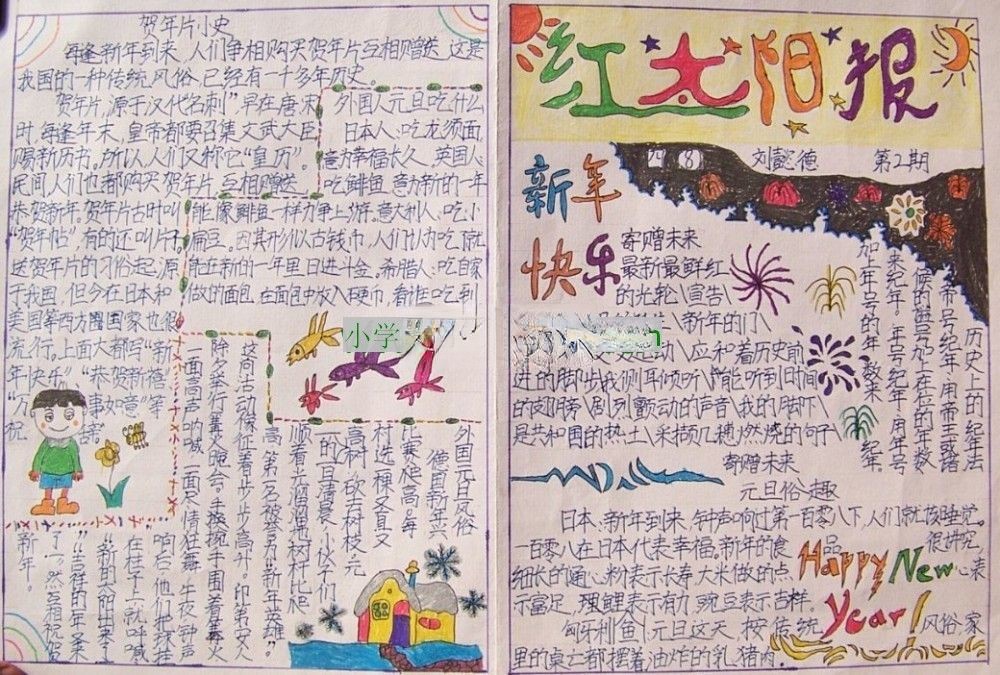 贺年片小史
每逢新年到来,人们争相购买贺年片互相赠送,这是
我国的一种传统风俗,已经有一千多年历史。
贺年片,源于汉代"名刺"早在唐宋
时,每逢年末,皇帝都要召集文武大臣
赐新历书。所以,人们又称它"皇历"。
民间人们也都购买贺年片,互相赠送
恭贺新年。贺年片古时叫
"贺年帖",有的还叫片子
送贺年片的习俗起源
于我国,但今在日本和
美国等西方国家也很
流行。上面大都写"新
年快乐""恭贺新禧"
事如意"等
祝
外国人元旦吃什么
日本人:吃龙须面,
意为幸福长久。英国人:
吃鲜鱼,意为新的一年
能像鲜鱼一样力争上游。意大利人:吃小
扁豆。因其形似古钱币,人们认为吃
能在新的一年里日进斗金。希腊人:吃自家
做的面包,在面包中放入硬币,看谁吃到
小学
外国元旦风俗
德国新年兴
比赛爬高。每
村选一棵又直又
高树,砍去树枝,元
旦清晨,小伙子们
顺着光溜溜树杆比爬
高。第一名被誉为"新年英雄"
这高活动像征着步步高升。印第安人
除夕举行篝火晚会。手挽挽手围着篝火
一面高声的喊,一面尽情狂舞。午夜钟声
响后,他们把
在柱子上就呼喊
"新的太阳出来
""吉祥的一年来
了"。然后互相祝贺
新年。
红太阳报
刘懿德
第2期
新年
快乐
寄赠未来
最新最鲜红
的光轮\宣告\
\新年的门\
\应和着历史前
进的脚步我侧耳倾听\能听到日月间
的剧烈颤动的声音\我的脚下\
是共和国的热土\采撷几穗燃烧的句子\
寄赠未来
历史上的纪年法
帝号纪年:用帝王或诸
候的谥号加上在位的年数
来纪年。年号纪年:用年号
加上年号的年数来
纪年
元旦俗趣
日本:新年到来,钟声响过第一百零八下,人们就该睡觉。
一百零八在日本代表幸福。新年的食品很讲究
细长的通心粉表示长寿,大米做的点心表
示富足,理鲤表示有力,豌豆表示吉样。
匈牙利鱼\元旦这天,按传统风俗,家
里的桌上都摆着油炸的乳猪肉。
Happy New
Year!